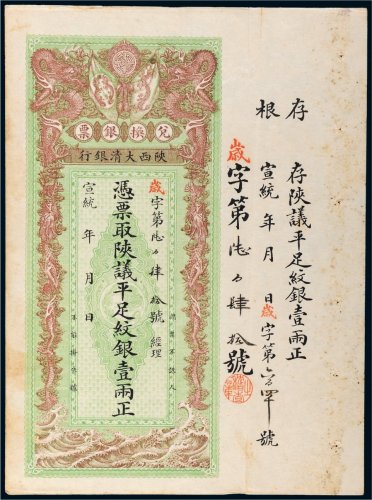 存根
存陝議平足紋銀壹兩正
宣統 年 月 日歲字第 號
歲字第陸百肆拾號
兌換銀票
陝西大清銀行
歲字第陸百肆拾號 經理
憑票取陝議平足紋銀壹兩正
宣統 年 月 日
認票不認人